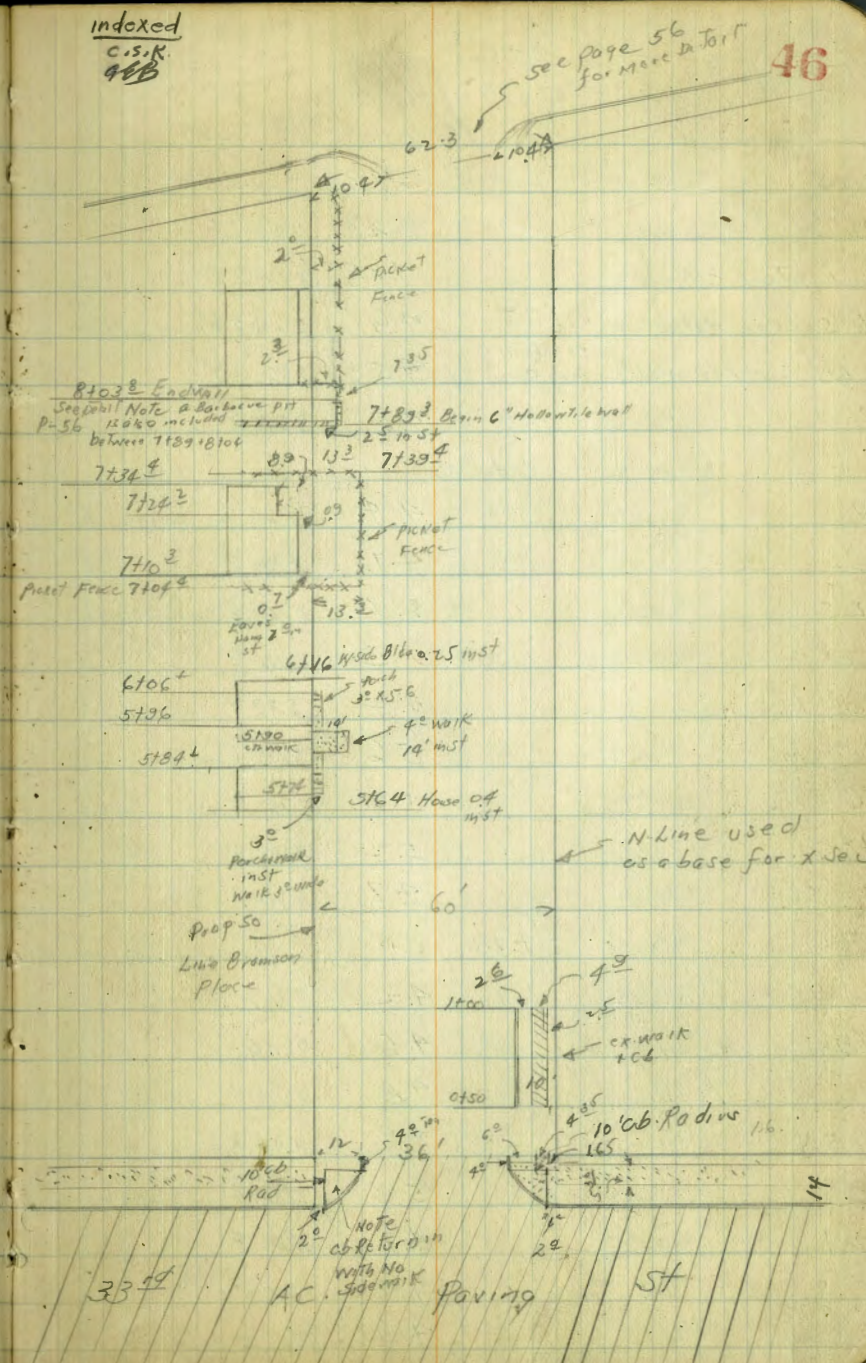 indexed
C.S.K.
46
See page 56
for More Detail
62.3
10.47
10.47
2º
Picket
Fence
2³
7³⁵
8+03⁸ Endwall
See Detail Note a Barbecue pit
P-56 is also included
between 7+89 + 8+04
7+89³ Begin 6" Hollow Tile Wall
2⁵ in st
7+34⁴
8.9
13³
7+39⁴
7+24²
09
Picket
Fence
7+10³
Picket Fence 7+04⁴
0.7
13.3
Eaves
Hang 2º in
st
6+16 W side Bldg 0.25 in st
6+06±
Porch
3º x 5.6
5+96
5+90
ex walk
14'
4º walk
14' in st
5+84±
5+74
5+64 House 0.4
in st
3º
Porch & walk
in st
Walk 3º wide
N-Line used
as a base for x Sec
60'
Prop So
Line Bramson
Place
2⁶
4⁹
1+00
2.5
ex. walk
+ cb
10'
0+50
4³⁵
10' cb. Radius
12
4º
36'
6º
165
1.6
10' cb
Rad
4º
14
2º
Note
cb Return in
with No
Sidewalk
2º
33rd A.C. Paving St